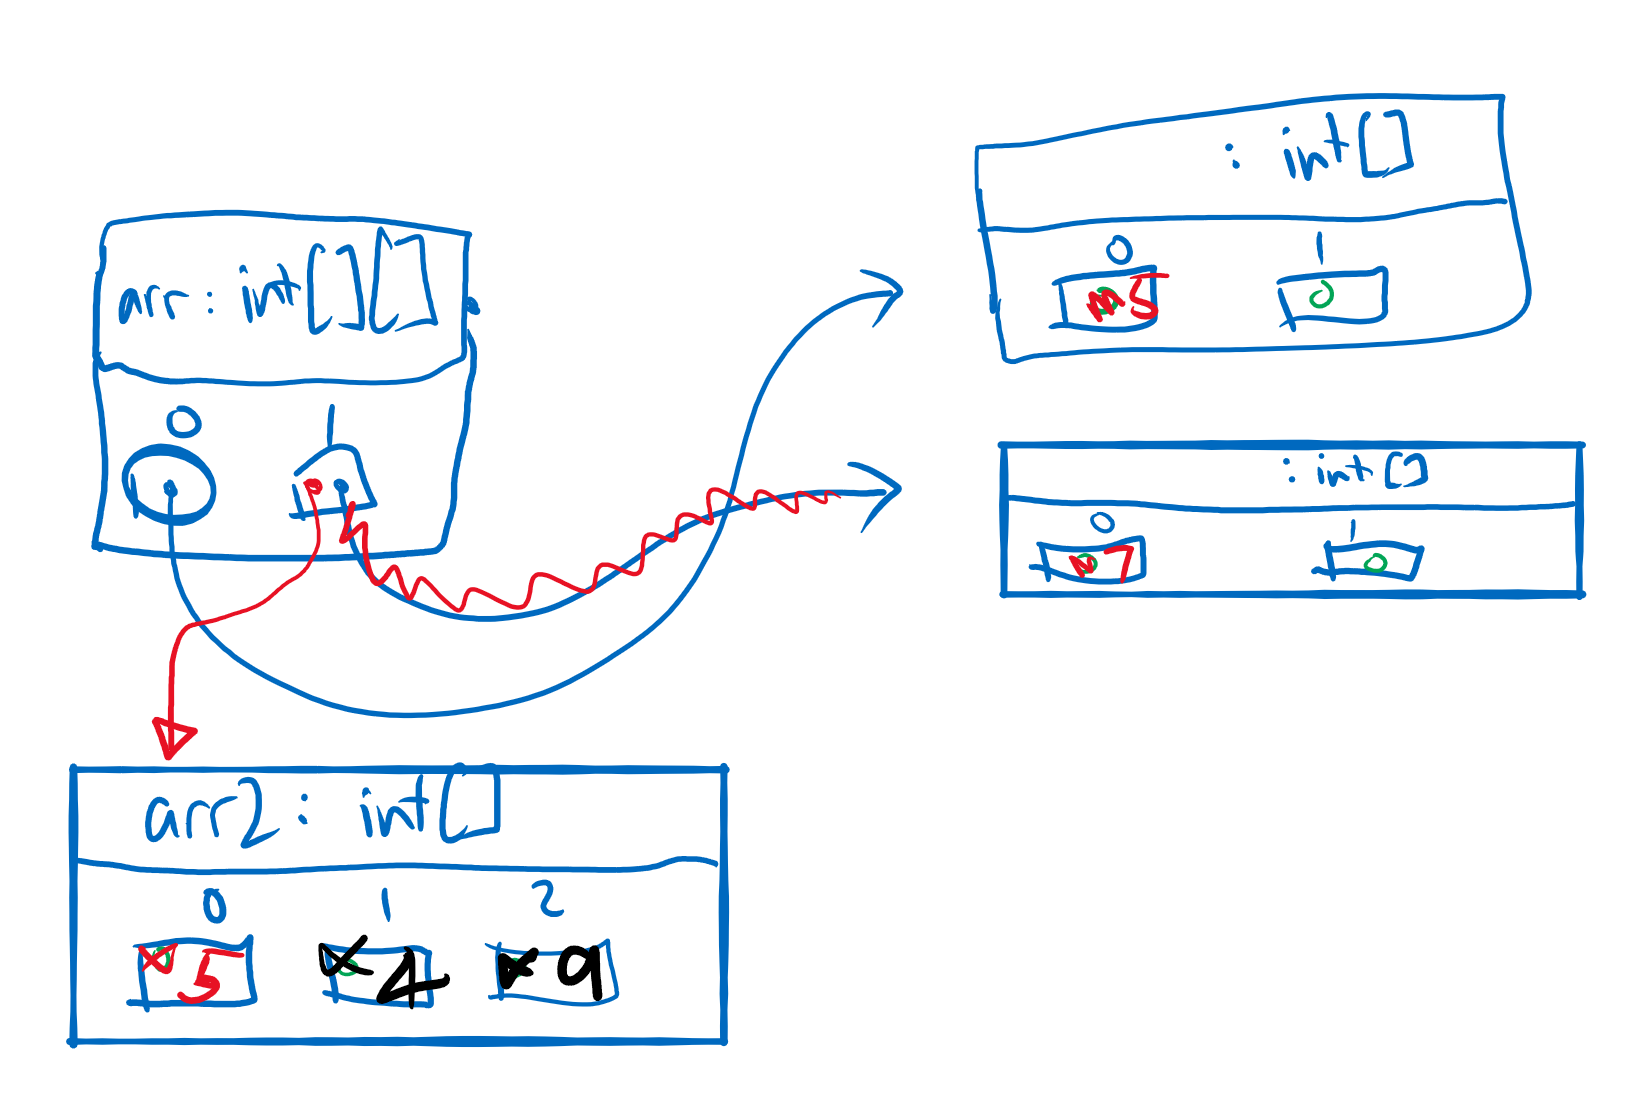 arr: int[][]
0 1
: int[]
0 1
5 0
: int[]
0 1
7 0
arr2: int[]
0 1 2
5 4 9